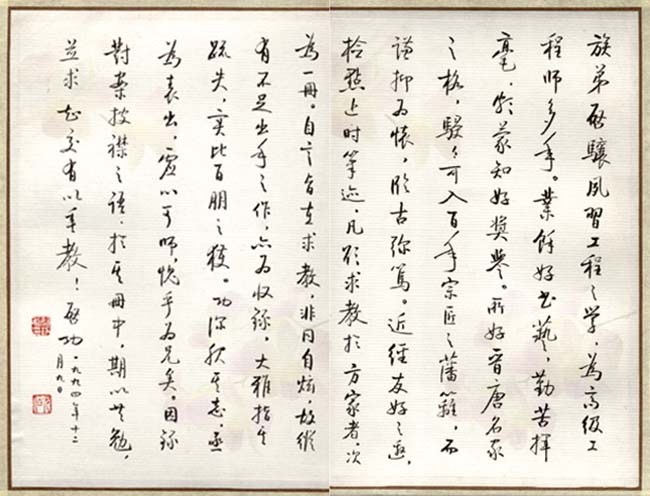 族弟啟驤夙習工程之學，為高級工
程師多年。業餘好書藝，勤苦揮
毫，頗蒙知好奬譽。所好晉唐名家
之格，駸々可入百年宗匠之藩籬，而
謙抑為懷，臨古彌篤。近經友好之邀，
拾點 时筆迹，凡欲求教於方家者，次
為一冊。自言旨在求教，非同自炫，故縱
有不足出手之作，亦為收錄，大雅指其
疏失，實比百朋之獲。功深欽其志，亟
為表出，虛心可師，愧乎為兄矣。因錄
對案披襟之語，於其冊中，期以共勉，
並求知交有以 教！啟功 一九九四年十二
月九日